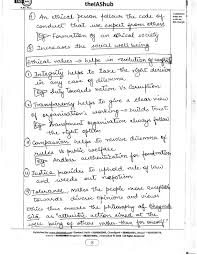 theIAShub
① An ethical person follows the code of
conduct that we expect from others
Eg: Formation of an ethical society
② Increases the social well being
Ethical values → helps in resolution of
① Integrity helps to take the right decision
in any case of dilemma
Eg: Duty towards nation Vs Corruption
② Transparency helps to give a clear view
of organisation's working - builds trust
Eg: Transparent organisation always follow
the right option
③ Compassion helps to resolve dilemma of
rules Vs public welfare
Eg: Aadhar authentication for
④ Justice provides to uphold rule of law
and weeds out nepotism.
⑤ Tolerance makes the people more
towards diverse opinions and views
Ethics thus ensures the philosophy of
as "altruistic action aimed at the
well being of others rather than for oneself"